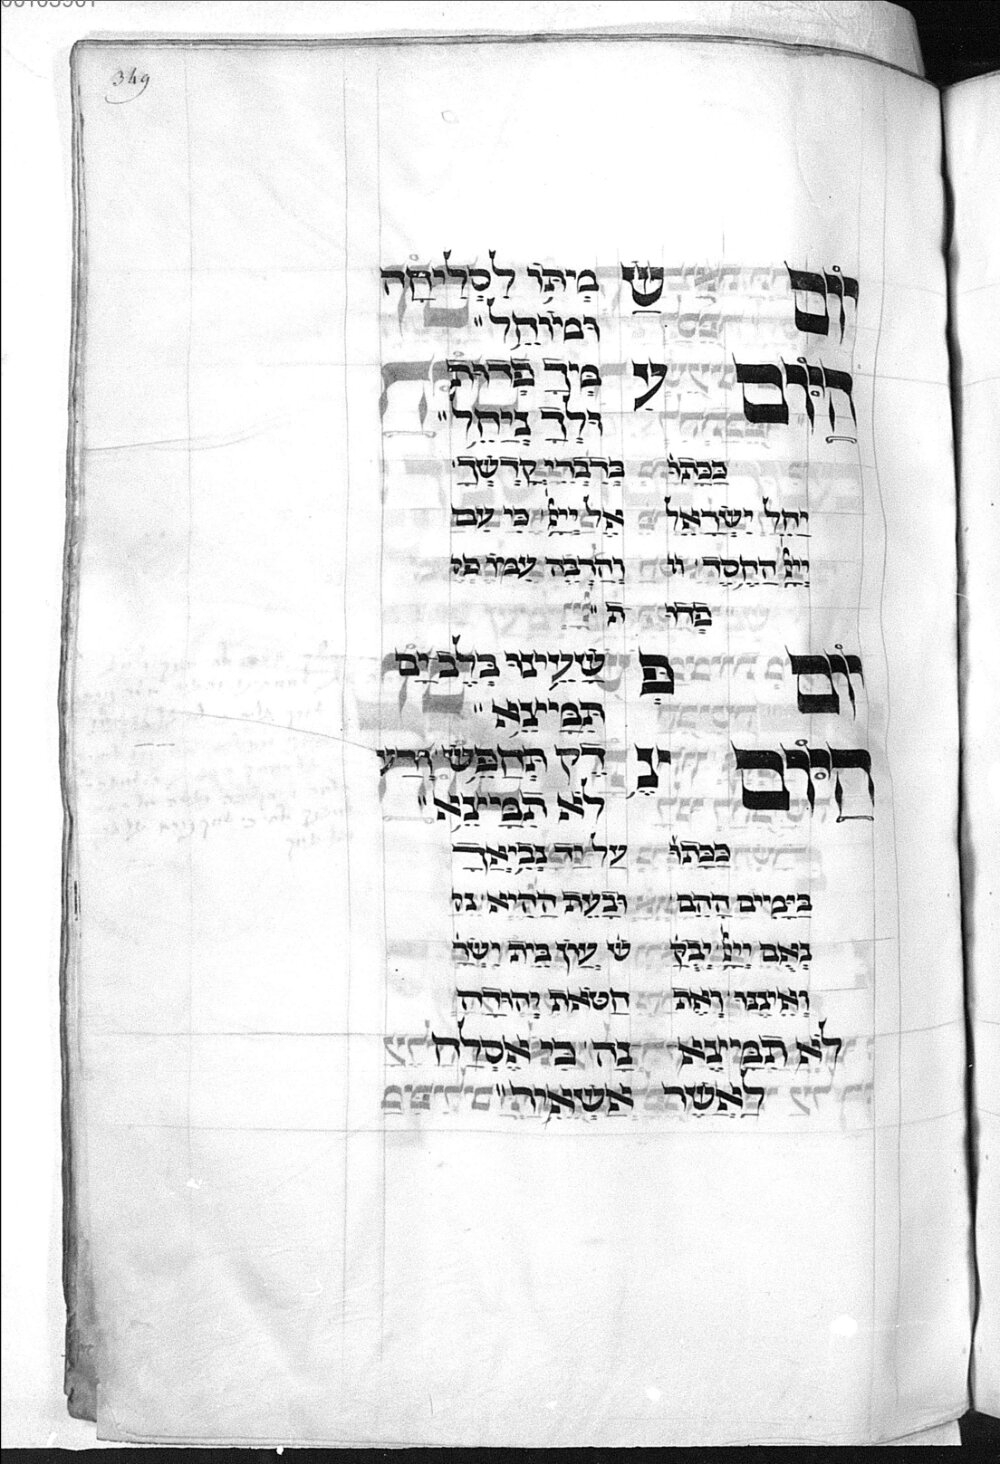 349
יוֹם שַׂמְתּוֹ לִסְלִיחָה
וּמְיוּחָל״
הַיּוֹם עַמְּךָ פְּדוּת
וּלְךָ נְיַחֵל״
ככתו׳ בדברי קדשך׳
יחל ישראל אל ייי כי עם
ייי החסד וי והרבה עמו פ
פדו ת״
יוֹם פְּשָׁעֵינוּ בַּל־בְּיָם
תמייצא״
הַיּוֹם תחפש
לא תמייצא״
ככתו׳ על יד נביאך
בימים ההם ובעת ההיא נ
נאם ייי יבק ש עון בית ישר
ואיננו ואת חטאת יהודה
לא תמייצא נה כי אסלח
לאשר אשאיר״